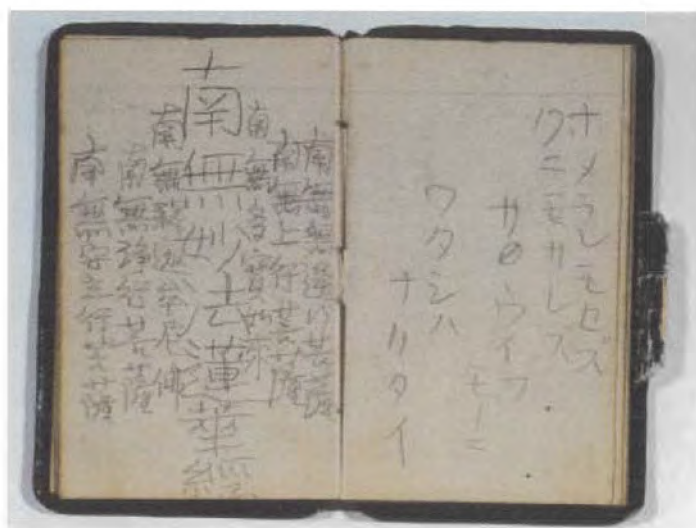 ホメラレモセズ
クニモサレズ
サウイフ
モノニ
ワタシハ
ナリタイ
南無無邊行菩薩
南無上行菩薩
南無多寶如来
南無妙法蓮華經
南無釈迦牟尼佛
南無浄行菩薩
南無安立行菩薩